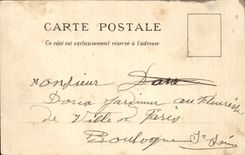 CARTE POSTALE
Ce côté est exclusivement réservé à l'adresse
Monsieur
Jardinier au fleuriste
de Ville de Paris
Boulogne s/ Seine